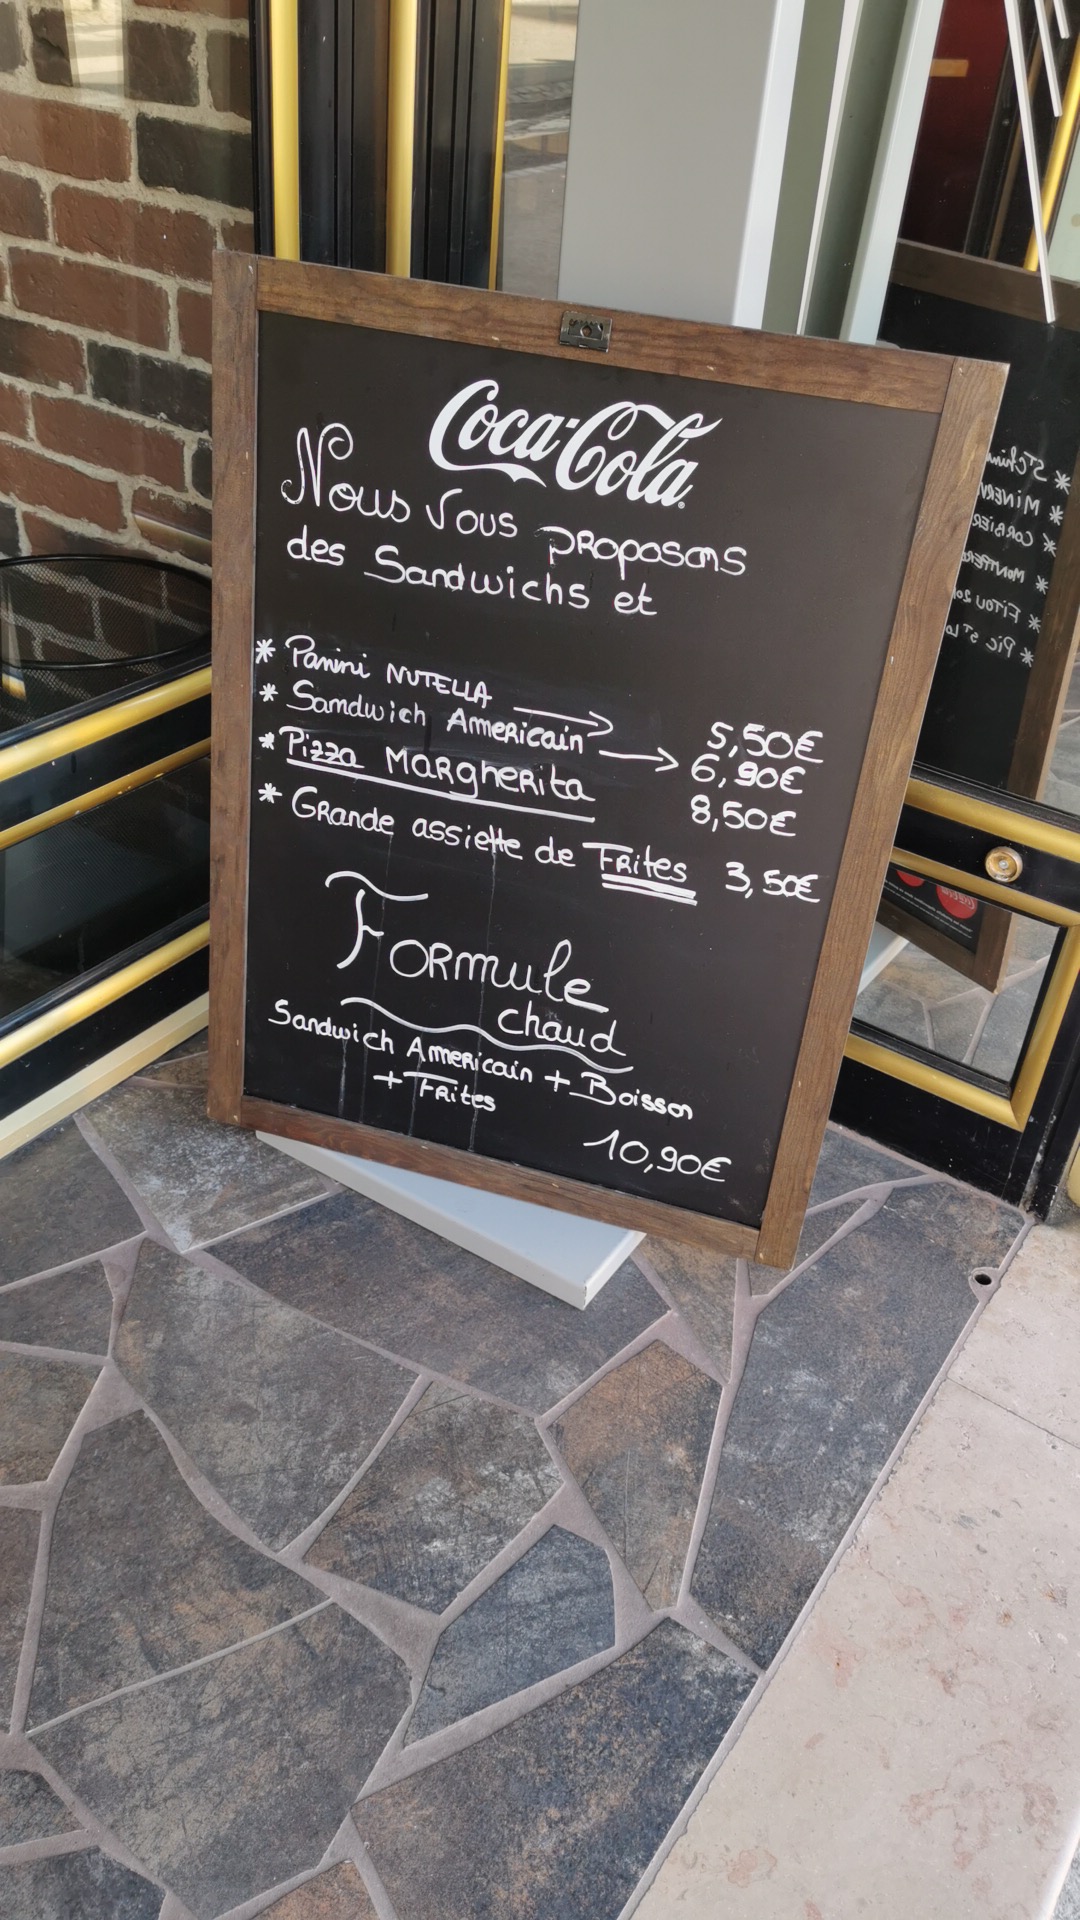 Coca-Cola
Nous Vous proposons
des Sandwichs et
* Panini NUTELLA → 5,50€
* Sandwich Americain → 6,90€
* Pizza Margherita 8,50€
* Grande assiette de Frites 3,50€
Formule
chaud
Sandwich Americain + Boisson
+ Frites
10,90€
* MINERV
* CORBIER
* FITOU 20